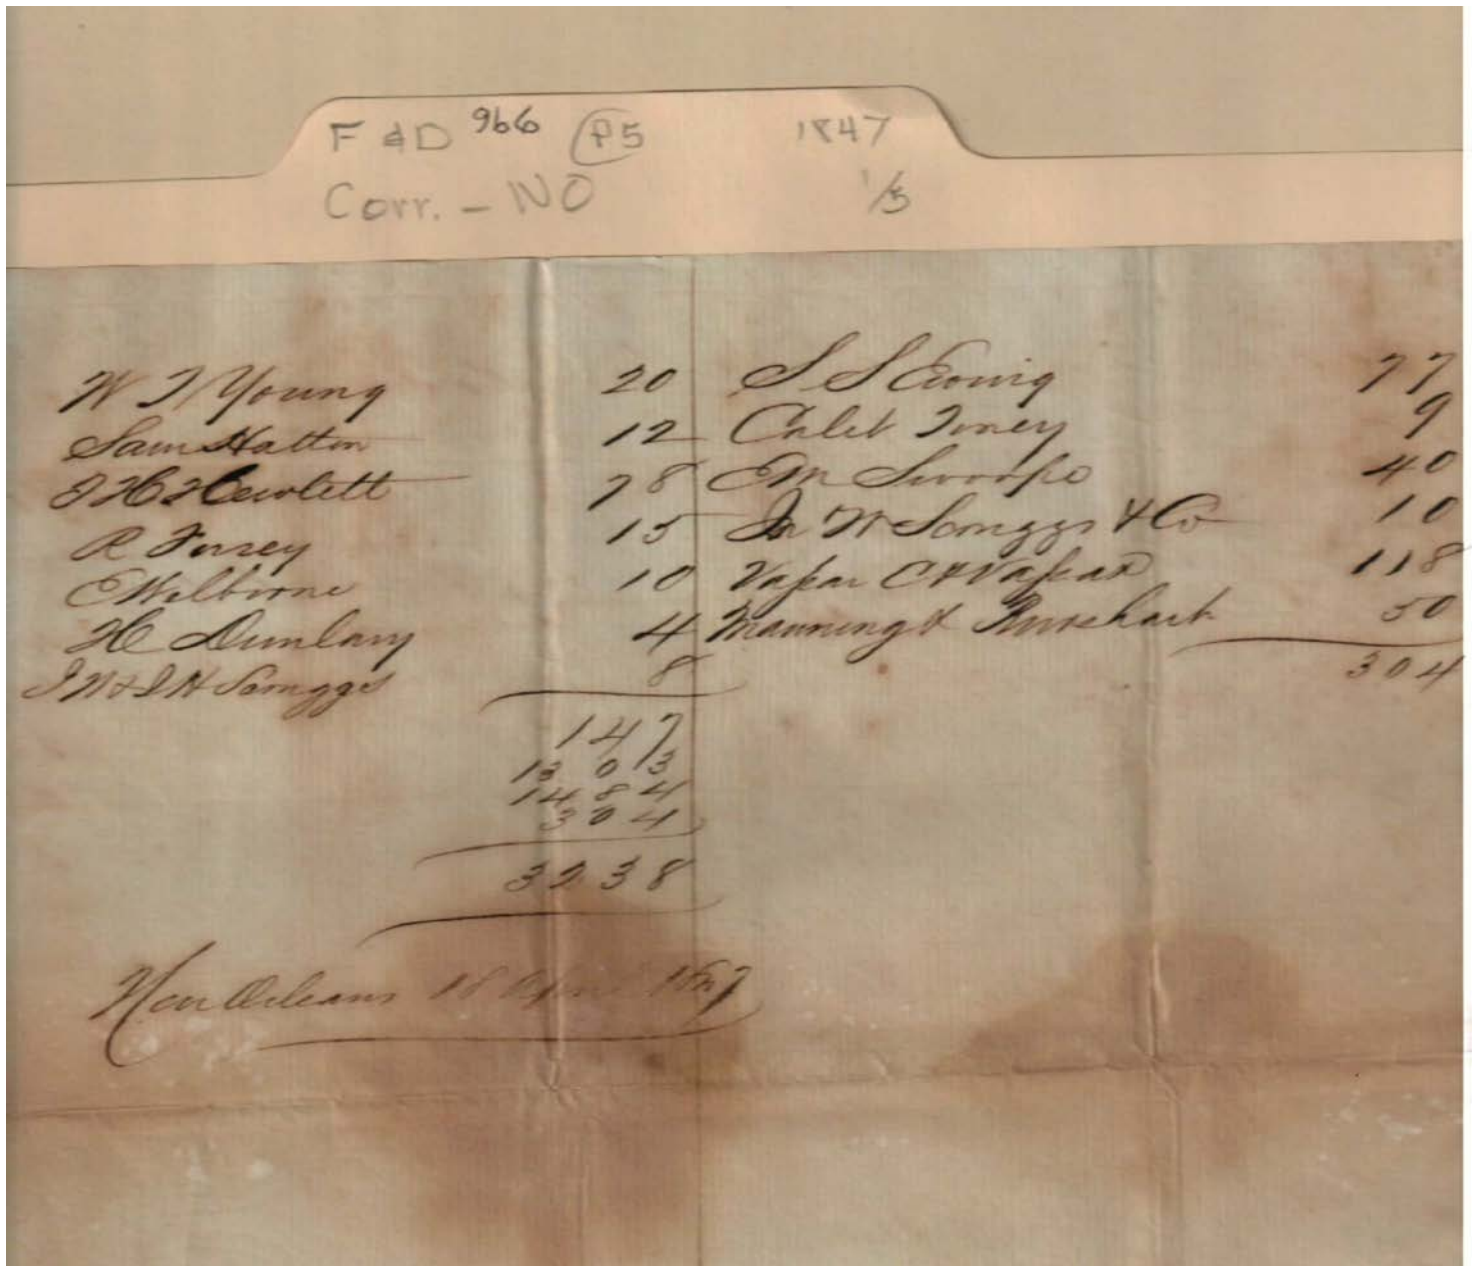 F & D 966 P5 1847
Corr. - NO 1/5
W T Young 20
Sam Hatton 12
J H Hewlett 78
R Fursey 15
E Wilborne 10
H Dunlavy 4
J W & J H Scruggs 8
147
1303
1484
304
3238
S S Ewing 77
Caleb Toney 9
E M Swoope 40
Jn W Scruggs & Co 10
118
Manning & 50
304
New Orleans 18 April 1847